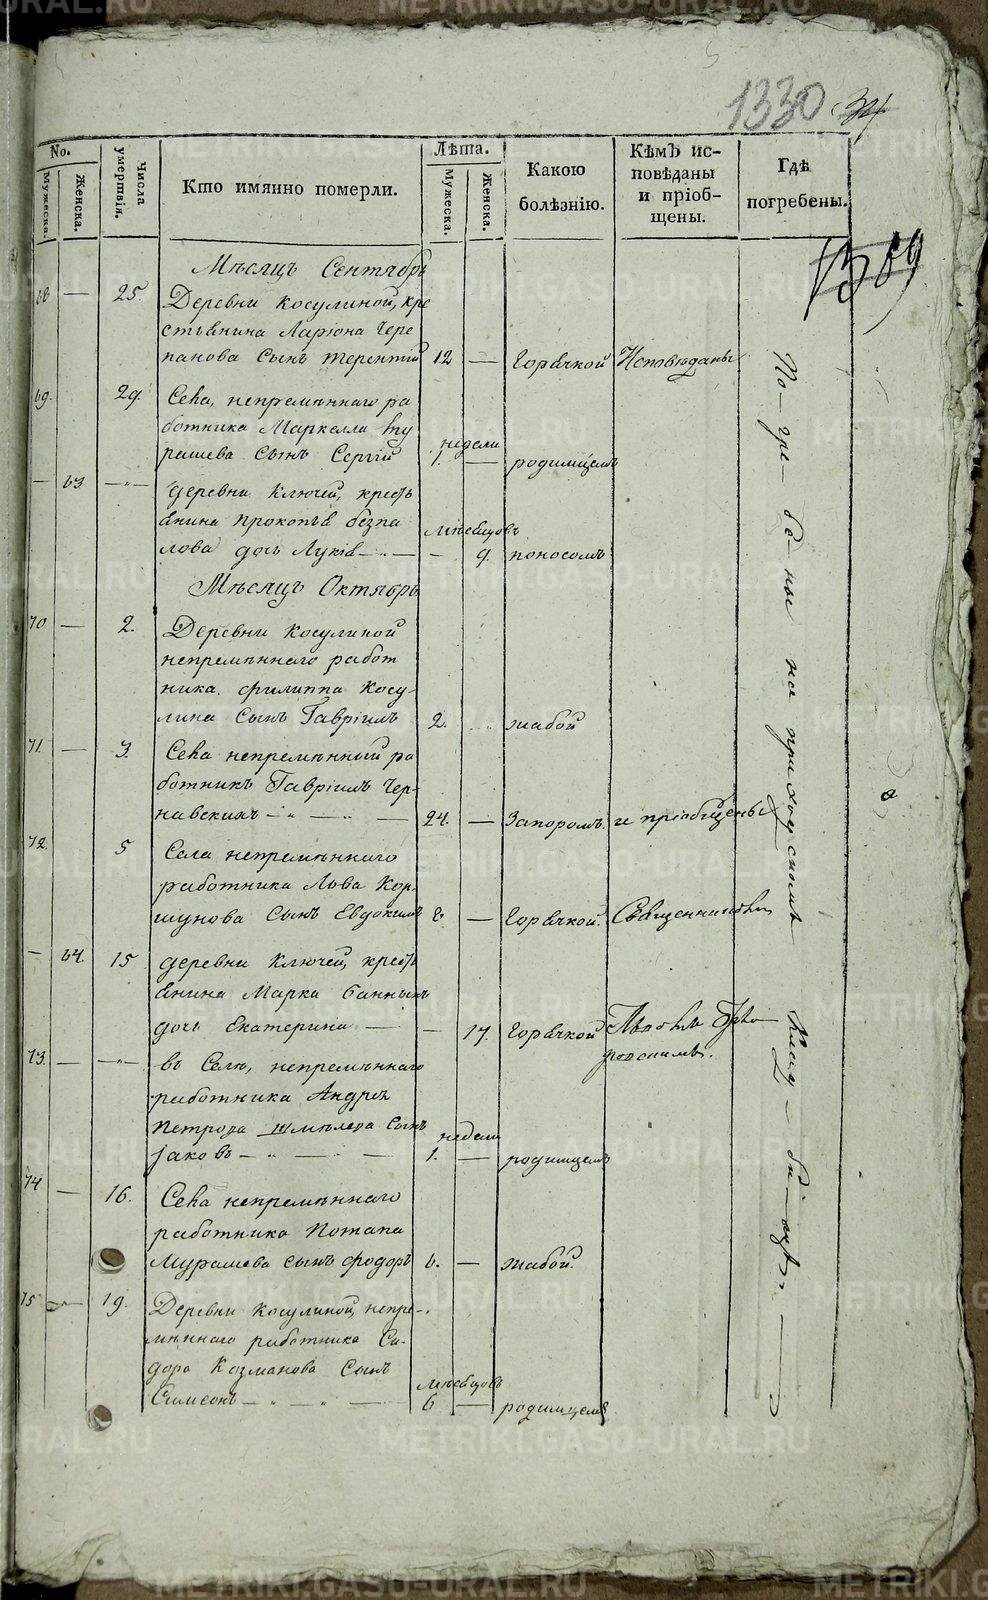 1330 34
No. Числа умертвія. Кто имянно померли. Лѣта. Какою болѣзнію. Кѣмъ исповѣданы и пріобщены. Гдѣ погребены.
Мужеска. Женска. Мужеска. Женска.
1389
Мѣсяцъ Сентябрь
68 — 25. Деревни Косулиной, кре
стьянина Ларіона Чере
панова Сынъ Терентій 12 — горячкой Исповѣданы
69. 29. Села, непремѣннаго ра
ботника Маркелла Му
рашева Сынъ Сергій недели 1. — родимцемъ
— 63 —〃— деревни Ключей, кресть
янина Прокопья безпа
лова дочь Лукія —〃— мѣсяцовъ — 9. поносомъ
Мѣсяцъ Октябрь
70 — 2. Деревни Косулиной
непремѣннаго работ
ника Филиппа Косу-
лина Сынъ Гавріилъ 2. жабой
71. — 3. Села непремѣнный ра
ботникъ Гавріилъ Чер-
навскихъ —〃—〃— 24. — Запоромъ. и пріобщены
72. 5 Села непремѣннаго
работника Льва Кор-
шунова Сынъ Евдокимъ — горячкой. Священникомъ
— 64. 15 деревни Ключей, кресть
янина Марка банныхъ
дочь Екатерина — — 17. горячкой
73. — —〃— въ Селѣ, непремѣннаго
работника Андрея
Петрова Шмѣлева Сынъ
Іаковъ —〃— — недели 1. — родимцемъ
74 — 16. Села непремѣннаго
работника Потапа
Мурашева сынъ Ѳеодоръ 6. — жабой.
75 — 19. Деревни Косулиной, непре-
мѣннаго работника Си-
дора Козманова Сынъ
Симеонъ —〃—〃— мѣсяцовъ 6 — родимцемъ
По-гре-бе-ны на приходскомъ клад-би-щѣ.
METRIKI.GASO-URAL.RU